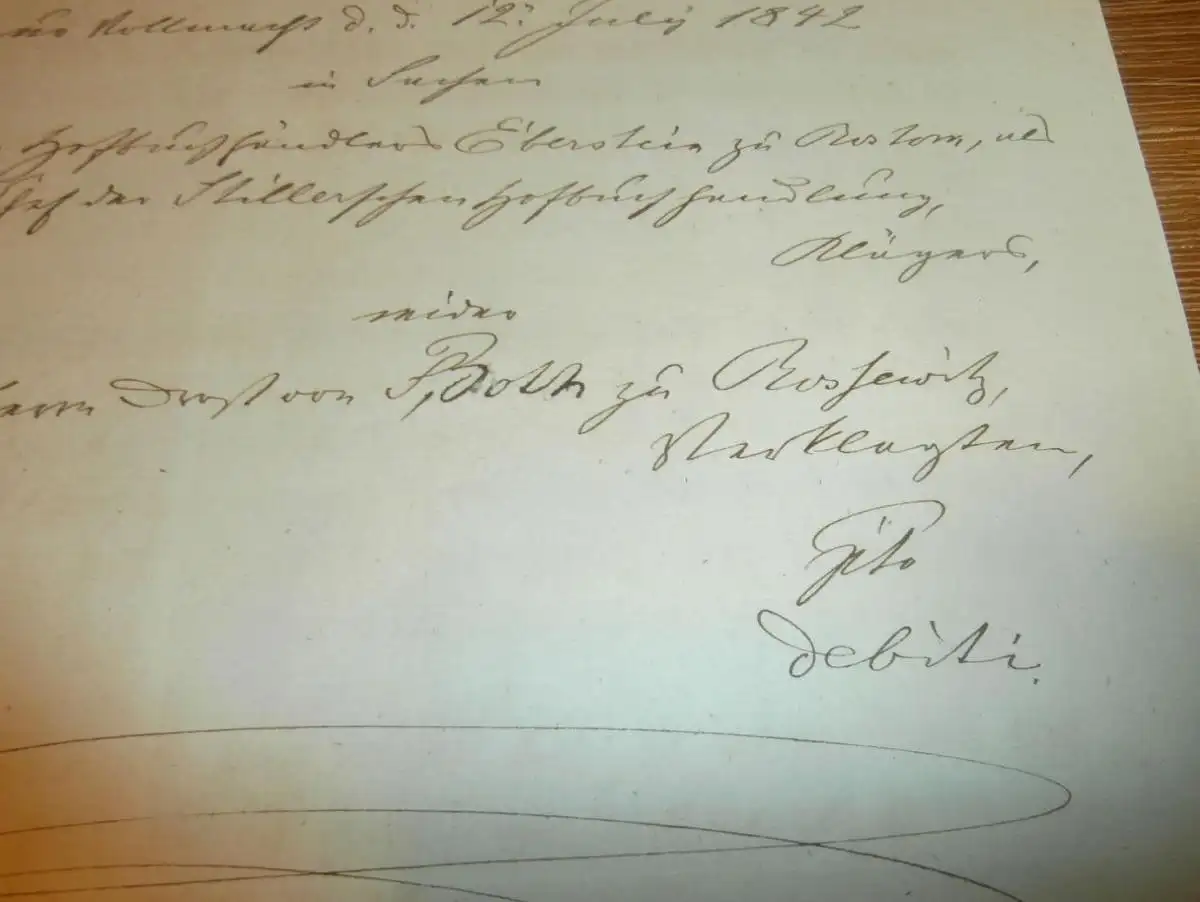 Vollmacht d. d. 12. July 1842
in Sachen
Hofbuchhändlers Eberstein zu Rostock, als
Chef der Stillerschen Hofbuchhandlung,
Klägers,
wider
Herrn Drost von Both zu Rossewitz,
Verklagten,
pto
debiti.